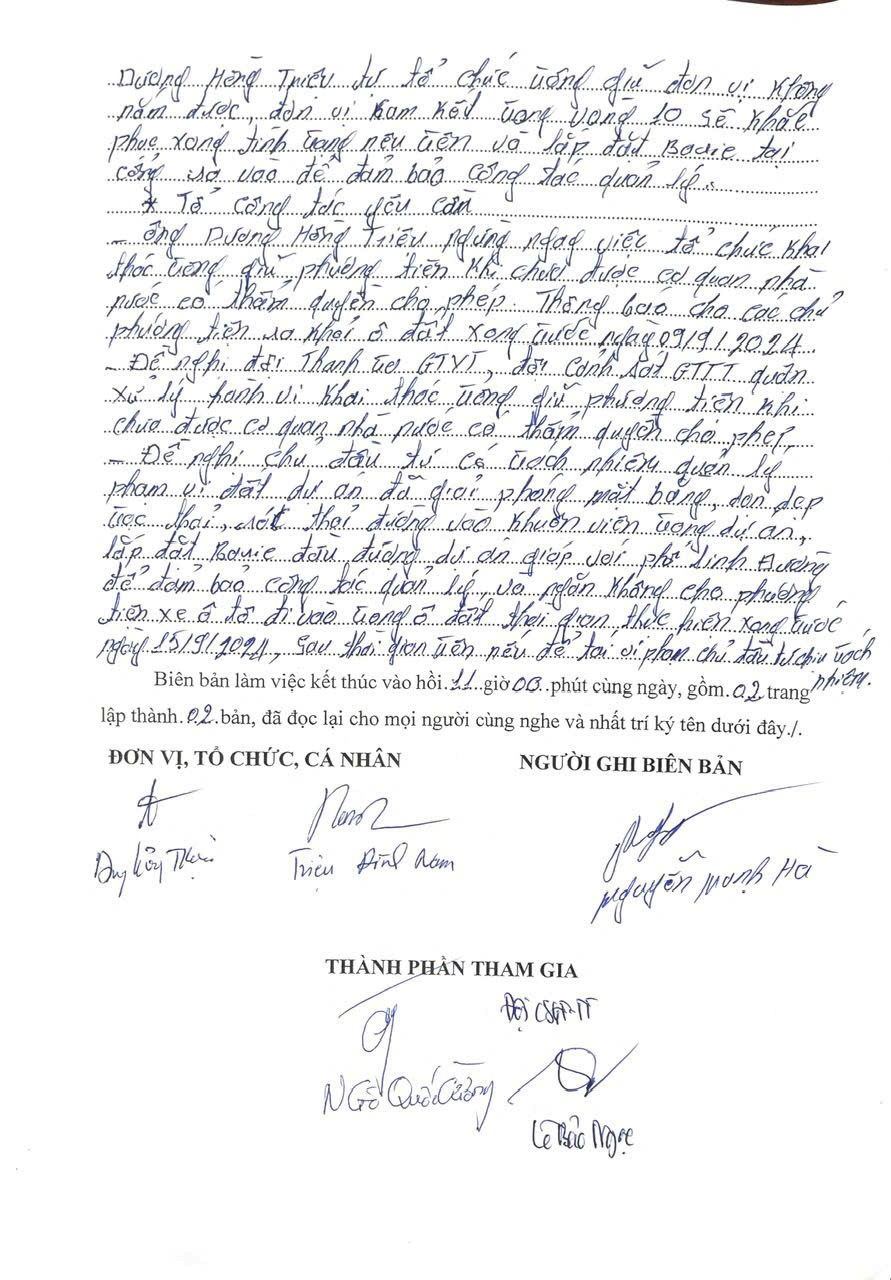 Dương Hồng Triều tự tổ chức trông giữ đơn vị không
nắm được, đơn vị Kam Kết trong vòng 10 sẽ khắc
phục xong tình trạng nêu trên và lắp đặt Barie tại
cổng ra vào để đảm bảo công tác quản lý.
* Tổ công tác yêu cầu
- Ông Dương Hồng Triều ngừng ngay việc tổ chức khai
thác trông giữ phương tiện khi chưa được cơ quan nhà
nước có thẩm quyền cho phép. Thông báo cho các chủ
phương tiện ra khỏi ô đất xong trước ngày 09/9/2024.
- Đề nghị đội Thanh tra GTVT, đội Cảnh sát GTTT quận
xử lý hành vi khai thác trông giữ phương tiện khi
chưa được cơ quan nhà nước có thẩm quyền cho phép.
- Đề nghị chủ đầu tư có trách nhiệm quản lý
phạm vi đất dự án đã giải phóng mặt bằng, dọn dẹp
rác thải, thải đường vào khuôn viên trong dự án,
lắp đặt Barie đầu đường dự án giáp với phố Linh Đường
để đảm bảo công tác quản lý, và ngăn không cho phương
tiện xe ô tô đi vào trong ô đất thời gian thực hiện xong trước
ngày 15/9/2024, sau thời gian trên nếu để tái vi phạm chủ đầu tư chịu trách
nhiệm.
Biên bản làm việc kết thúc vào hồi 11 giờ 00 phút cùng ngày, gồm 02 trang
lập thành 02 bản, đã đọc lại cho mọi người cùng nghe và nhất trí ký tên dưới đây./.
ĐƠN VỊ, TỔ CHỨC, CÁ NHÂN NGƯỜI GHI BIÊN BẢN
Triệu Đình Nam
Nguyễn Mạnh Hà
THÀNH PHẦN THAM GIA
Đội CSGT-TT
Ngô Quốc Cường
Lê Bảo Ngọc